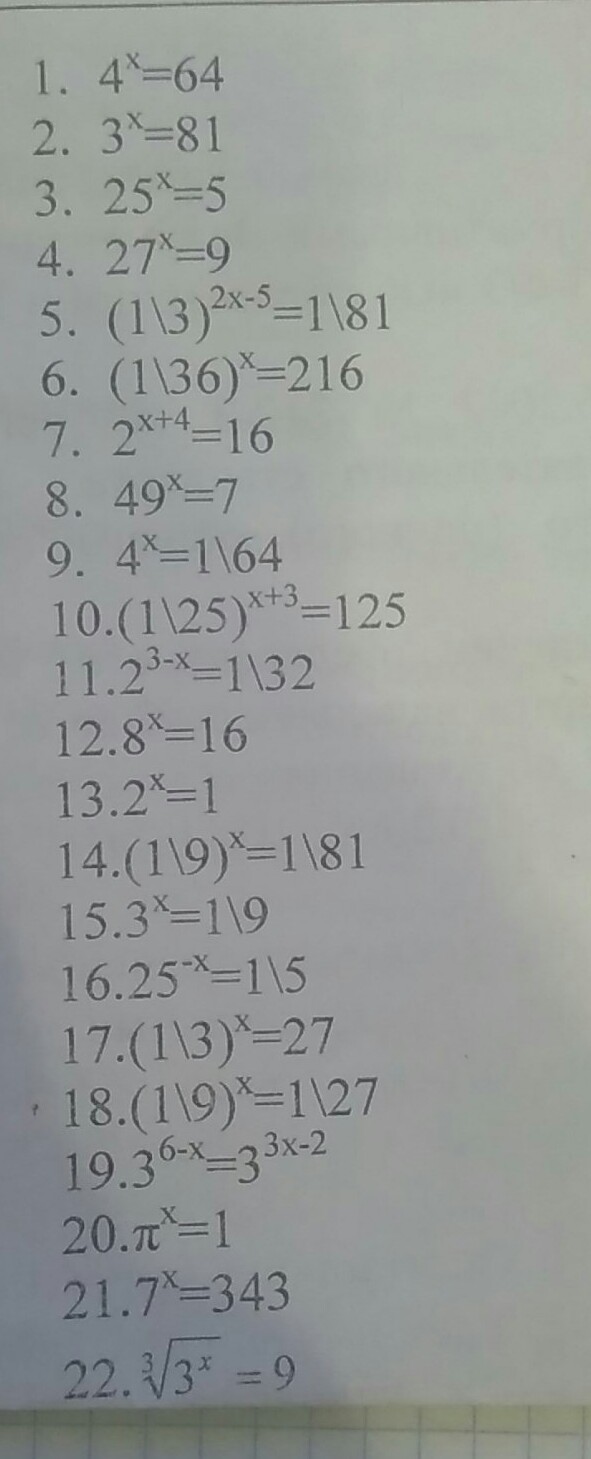 1. 4ˣ=64
2. 3ˣ=81
3. 25ˣ=5
4. 27ˣ=9
5. (1\3)²ˣ⁻⁵=1\81
6. (1\36)ˣ=216
7. 2ˣ⁺⁴=16
8. 49ˣ=7
9. 4ˣ=1\64
10.(1\25)ˣ⁺³=125
11.2³⁻ˣ=1\32
12.8ˣ=16
13.2ˣ=1
14.(1\9)ˣ=1\81
15.3ˣ=1\9
16.25⁻ˣ=1\5
17.(1\3)ˣ=27
18.(1\9)ˣ=1\27
19.3⁶⁻ˣ=3³ˣ⁻²
20.πˣ=1
21.7ˣ=343
22.∛3ˣ = 9